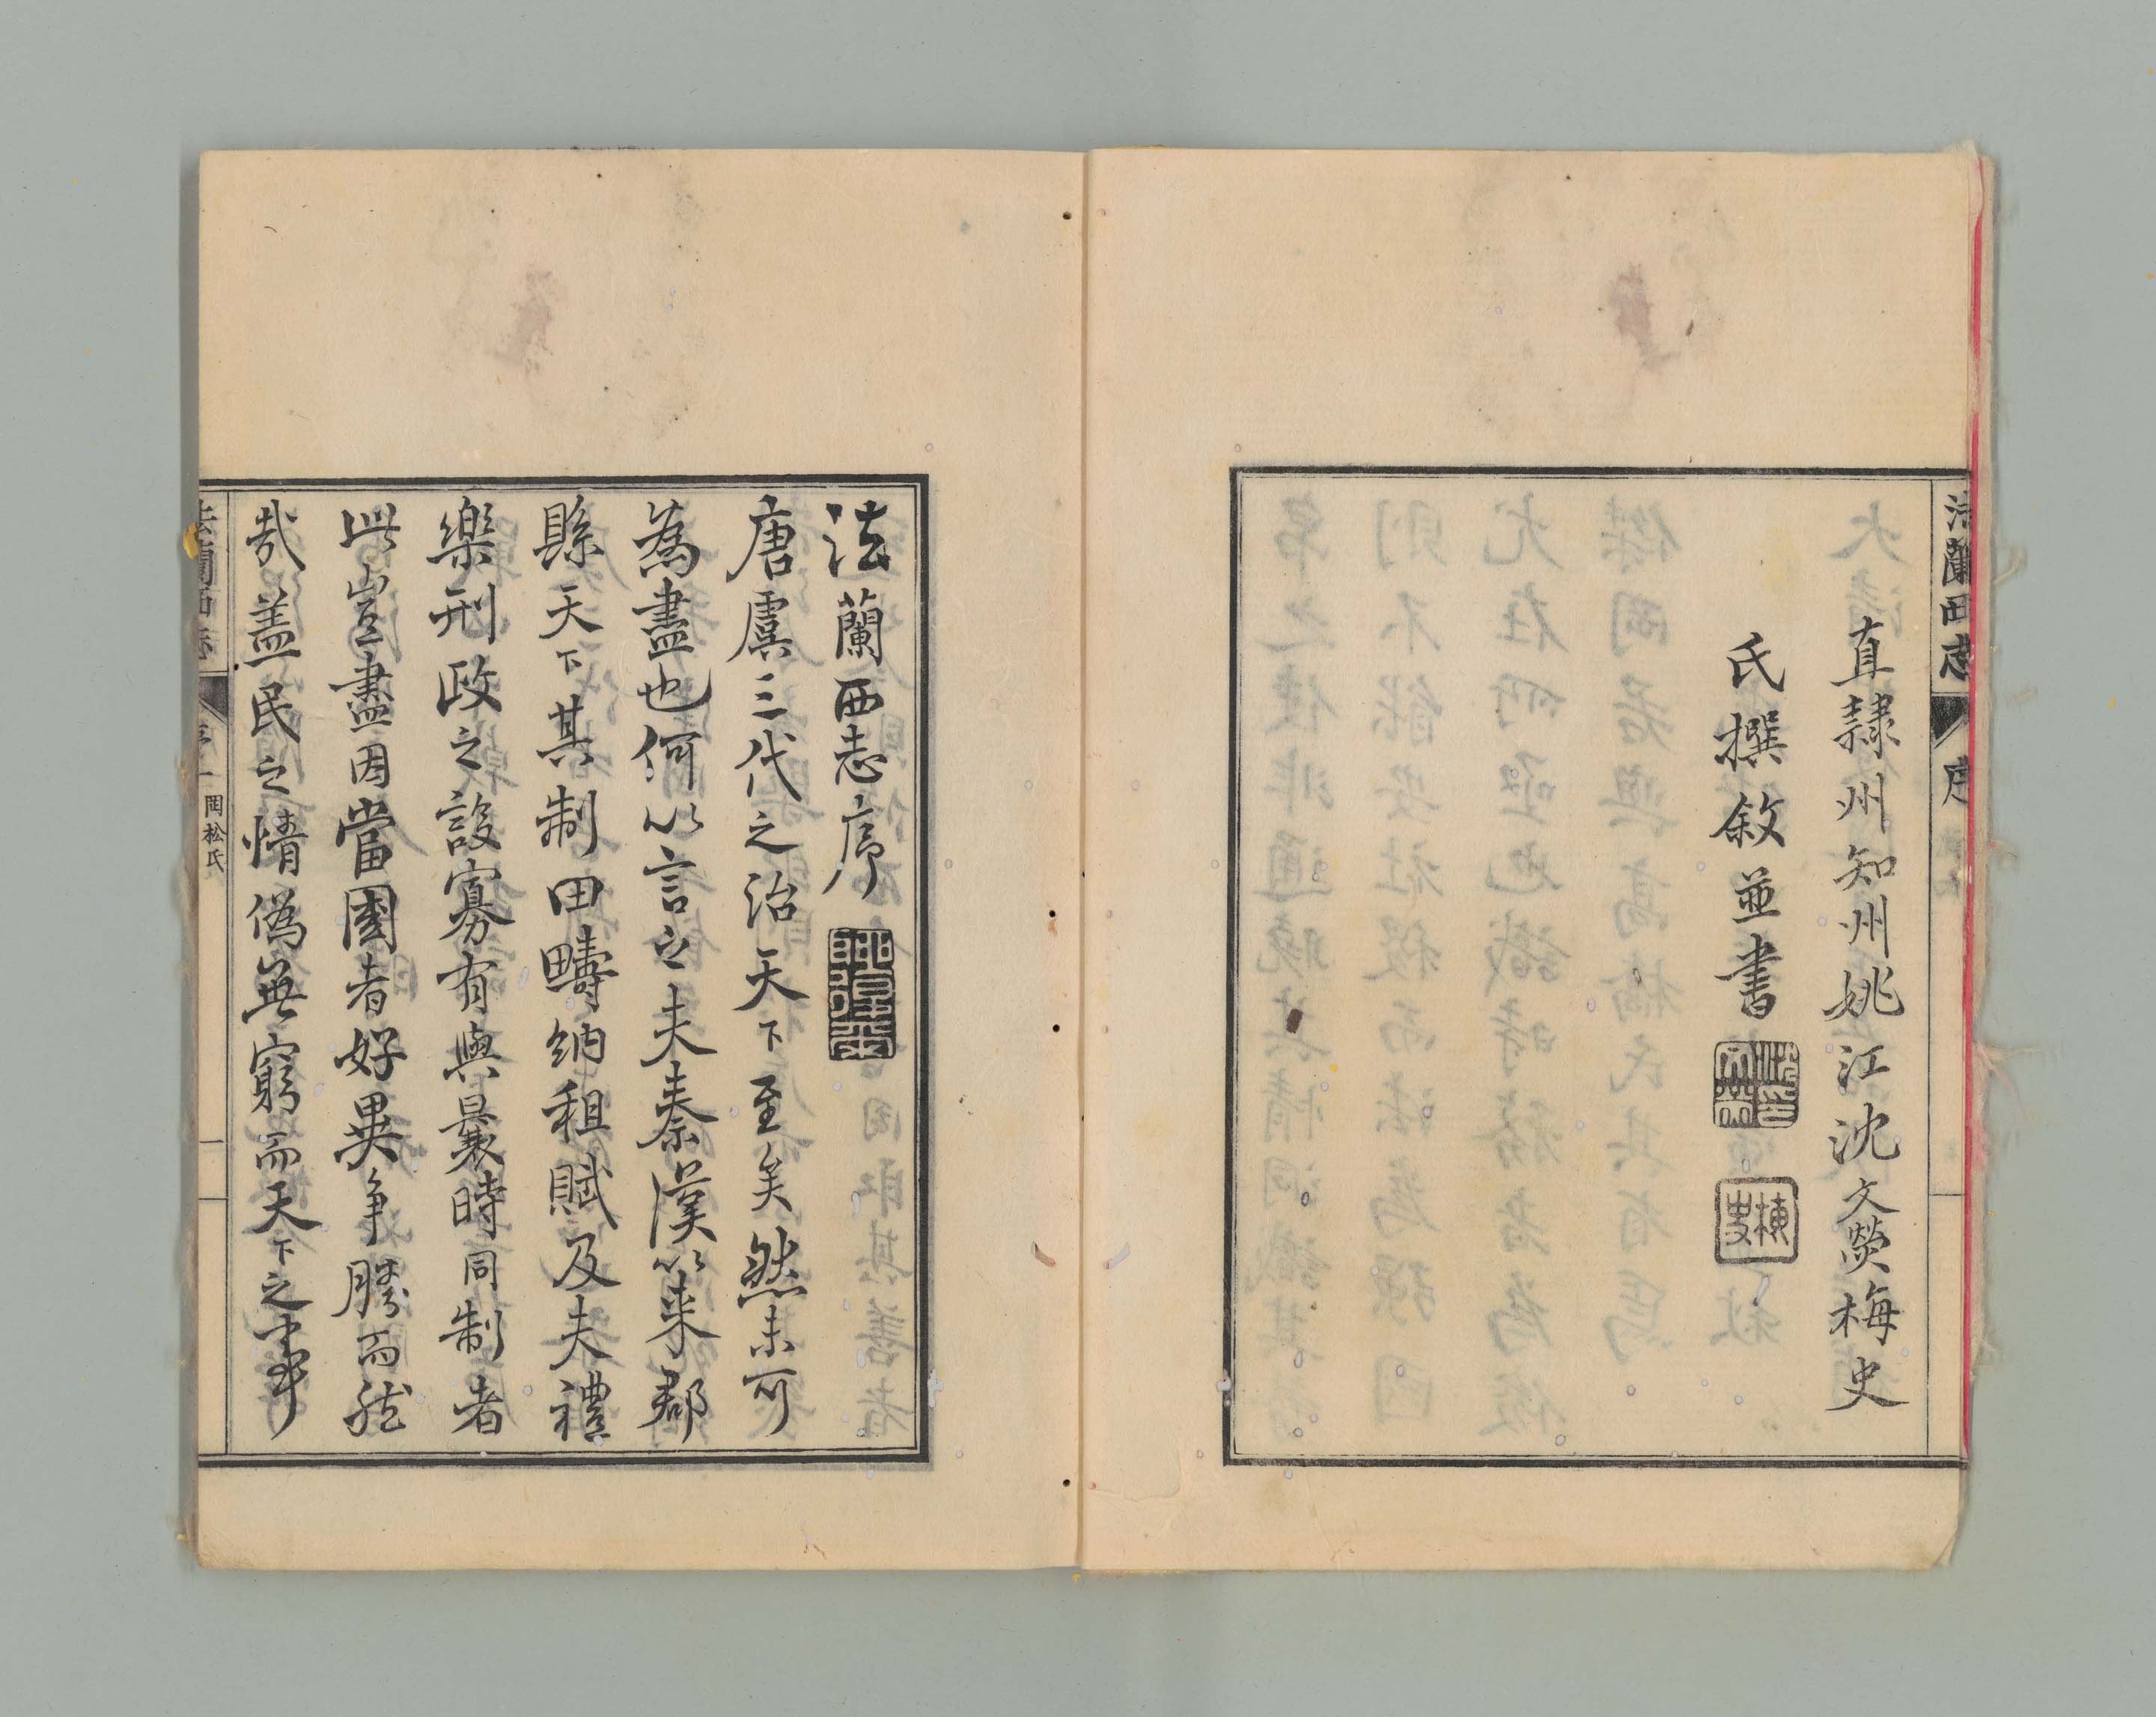 法蘭西志
序
直隸州知州姚江沈文熒梅史
氏撰敘並書
梅史
法蘭西志序
唐虞三代之治天下至矣然未可
為盡也何以言之夫秦漢以来郡
縣天下其制田疇納租賦及夫禮
樂刑政之設寡有與曩時同制者
此豈盡因當國者好異争勝而然
哉盖民之情偽無窮而天下之事
法蘭西志
序
一
岡松氏